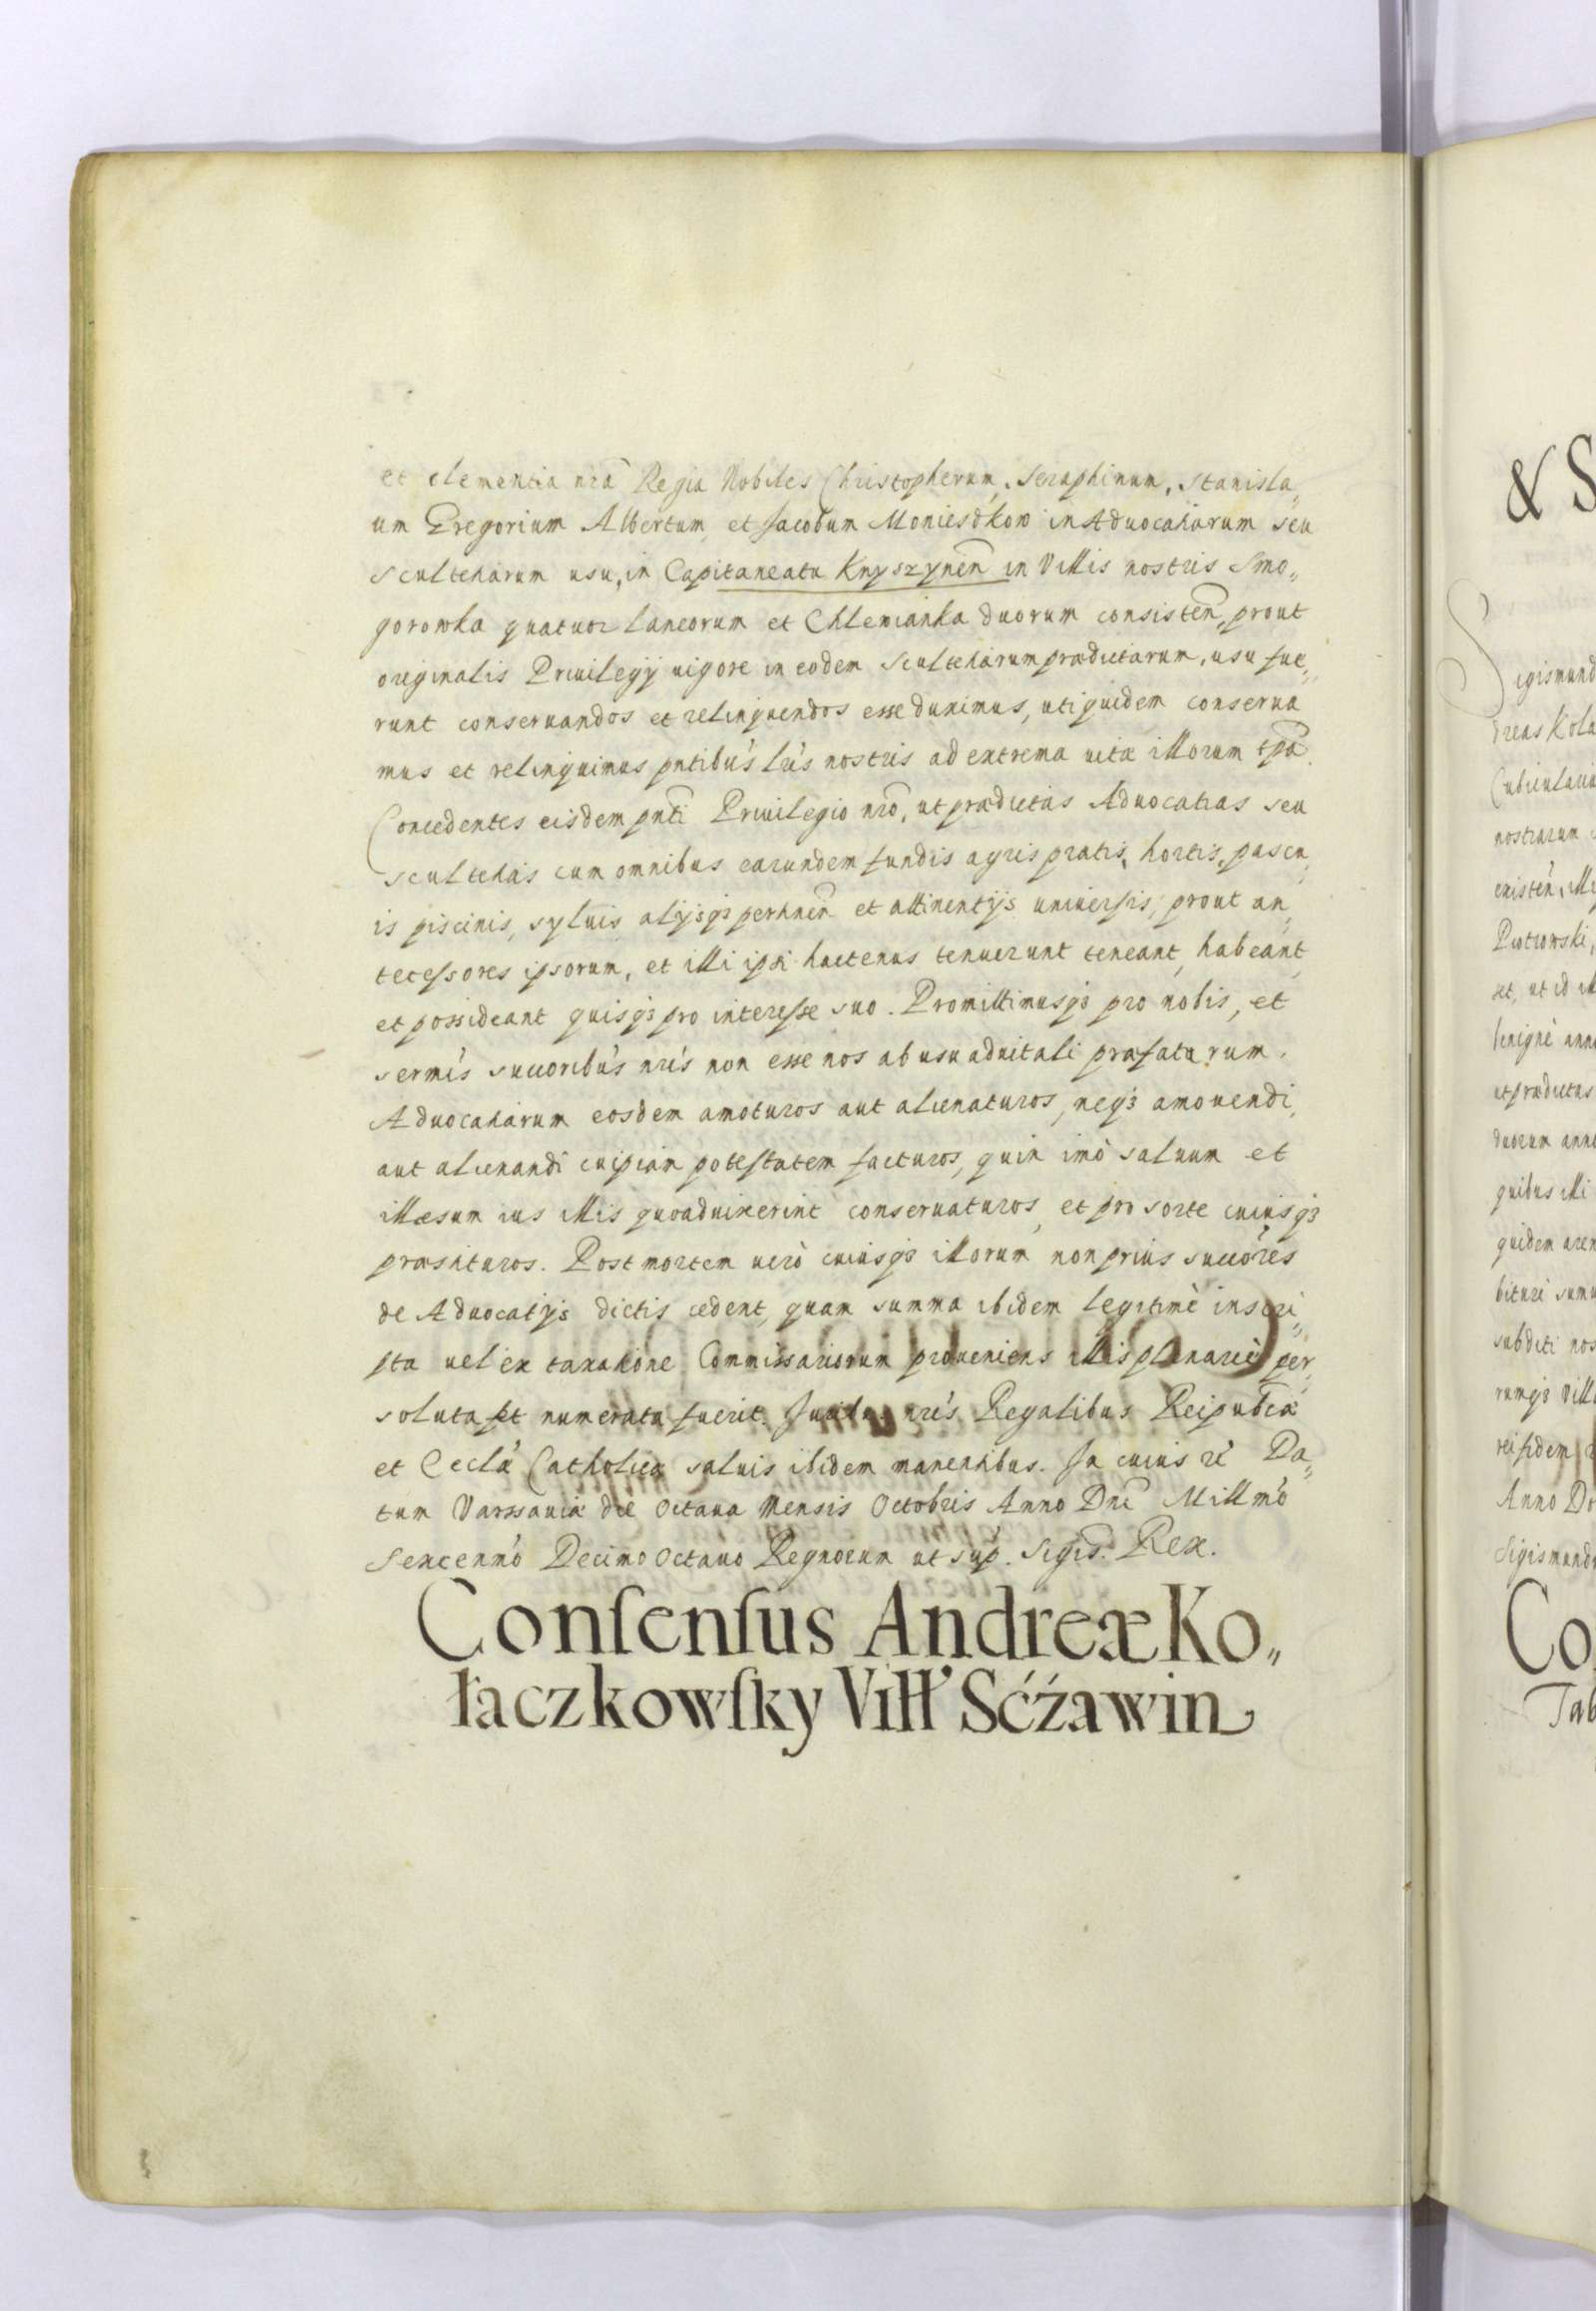 et clementia nrã Regia Nobiles Christopherum, Seraphinum, Stanisla„
um Gregorium Albertum et Jacobum Moniesdkow in Aduocatiarum seu
scultetiarum usu, in Capitaneatu Knyszynen̄ in Villis nostris Smo„
gorowka quatuor laneorum et Chlewianka duorum consisten̄, prout
originalis Priuilegij uigore in eodem scultetiarum prædictarum, usu fue„
runt conseruandos et relinquendos esse duximus, uti quidem conserua
mus et relinquimus pntibús lrís nostris ad extrema uitæ illorum tpã.
Concedentes eisdem pnti Priuilegio nro, ut prædictas Aduocatias seu
scultetias cum omnibus earundem fundis agris pratis, hortis, pascu„
is piscinis, syluis alijsqȝ pertinen̄ et attinentijs uniuersis, prout an„
tecessores ipsorum, et illi ipsi hactenus tenuerunt teneant, habeant,
et possideant quisqȝ pro interesse suo. Promittimusqȝ pro nobis, et
sermís succoribús nrís non esse nos ab usu aduitali præfatarum.
Aduocatiarum eosdem amoturos aut alienaturos, neqȝ amouendi,
aut alienandi cuipiam potestatem facturos, quin imò saluum et
illæsum ius illis quoad uixerint conseruaturos, et pro sorte cuiusqȝ
præstituros. Post mortem uerò cuiusqȝ illorum non prius succóres
de Aduocatijs dictis cedent, quam summa ibidem legitimè inscri„
pta uel ex taxatione Commissariorum proueniens illis plenariè per„
soluta et numerata fuerit. Juribus nrís Regalibus Reipublcæ
et Ecclæ Catholicæ saluis ibidem manentibus. In cuius rei Da„
tum Varssauiæ die Octaua Mensis Octobris Anno Dni Millmó
Sexcenmó Decimo Octauo Regnorum ut sup. Sigis. Rex.
Conſenſus Andreæ Ko„
łaczkowſky Vill' Sćźawin
& S
Sigismund
dreas Kola
Cubiculariu
nostrarum
existen̄
Piotrowski,
set, ut id il
benignè ann
ut prædictas
duorum anno
quibus illi
quidem aren
bituri sumu
subditi nos
rumqȝ Vill
Anno Do
Sigismund
Co
Tab